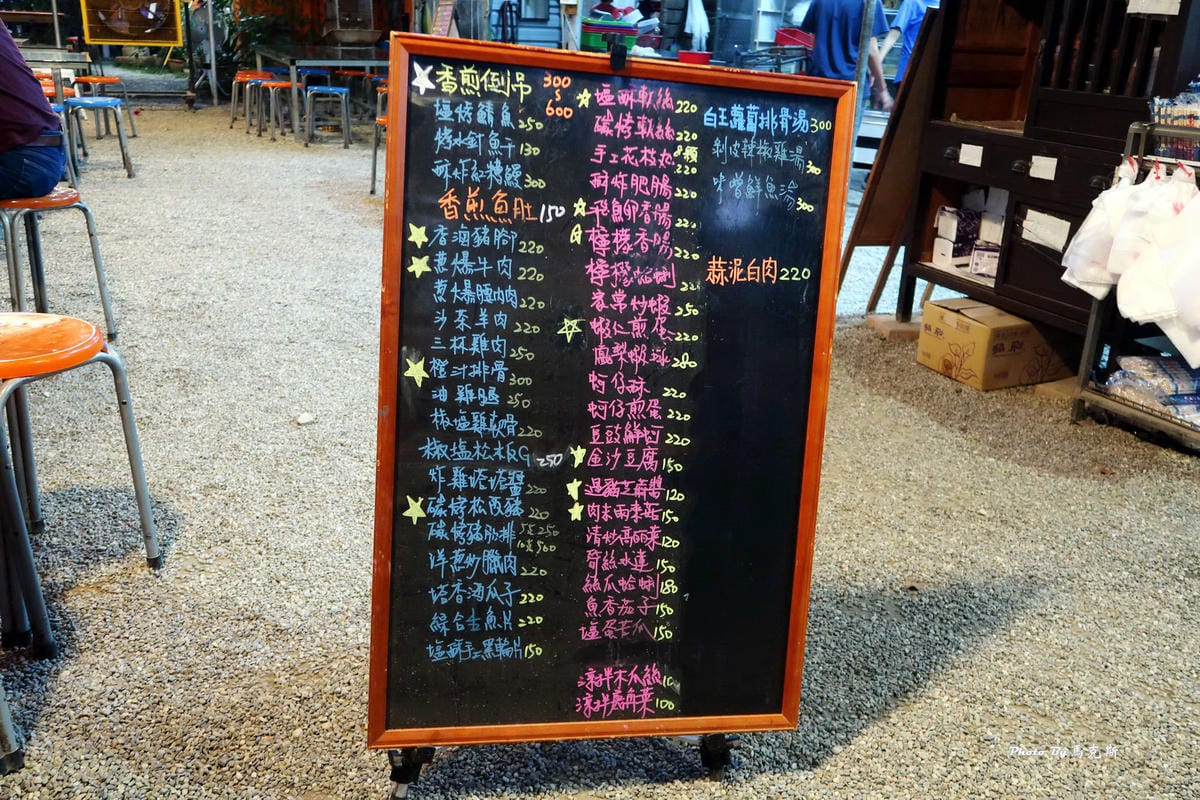 香煎倒吊 300 ~ 600
塩烤鯖魚 250
烤水針魚干 130
酥炸紅糟鰻 300
香煎魚肚 150
香滷豬腳 220
蔥爆牛肉 220
蔥爆鹿肉 220
沙茶羊肉 220
三杯雞肉 250
橙汁排骨 300
油雞腿 250
椒塩雞軟骨 220
椒塩松板G 250
炸雞塔塔醬 220
碳烤松阪豬 220
碳烤豬肋排 5支250 10支500
洋蔥炒臘肉 220
塔香海瓜子 220
綜合生魚片 220
塩酥手工黑輪片 150
塩酥軟絲 220
碳烤軟絲 220
手工花枝丸 8顆
酥炸肥腸 220
飛魚卵香腸 220
檸檬香腸 220
檸檬 蜊 22
家常炒蝦 250
蝦仁煎蛋 220
鳳梨蝦球 280
蚵仔酥 220
蚵仔煎蛋 220
豆豉鮮蚵 220
金沙豆腐 150
過貓芝麻醬 120
肉末兩來菇 150
清炒高麗菜 120
薺絲水蓮 150
絲瓜蛤蜊 180
魚香茄子 150
塩蛋苦瓜 150
涼拌木瓜絲 10
涼拌龍角菜 100
白玉蘿蔔排骨湯 300
剝皮辣椒雞湯 300
味噌鮮魚湯 300
蒜泥白肉 220
Photo By 馬克斯